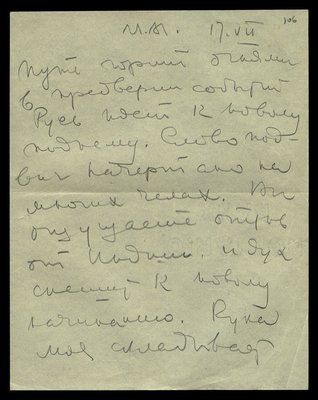 М.А. 17.VII 106
Путь горит огнями
в преддверии событий
Русь идет к новому
подъему. Слово под-
виг начертано на
многих челах. Вы
ощущаете отрыв
от Индии. и дух
спешит к новому
начинанию. Рука
моя складывает